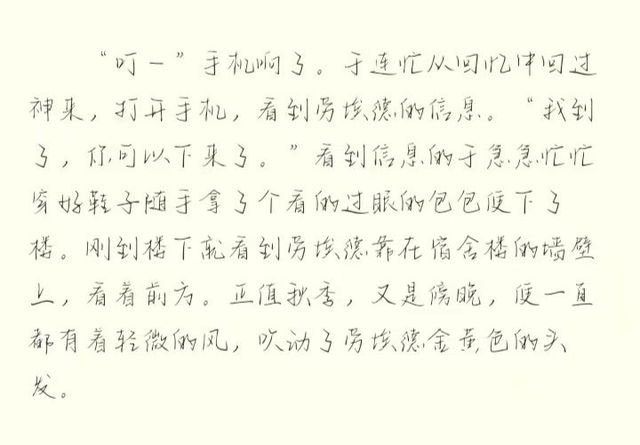 “叮一”手机响了。于连忙从回忆中回过
神来，打开手机，看到劳埃德的信息。“我到
了，你可以下来了。”看到信息的于急急忙忙
穿好鞋子随手拿了个看的过眼的包包便下了
楼。刚到楼下就看到劳埃德靠在宿舍楼的墙壁
上，看着前方。正值秋季，又是傍晚，便一直
都有着轻微的风，吹动了劳埃德金黄色的头
发。